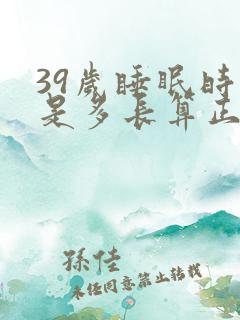 39岁睡眠时
是多长算正
孫佳
未经同意禁止转载